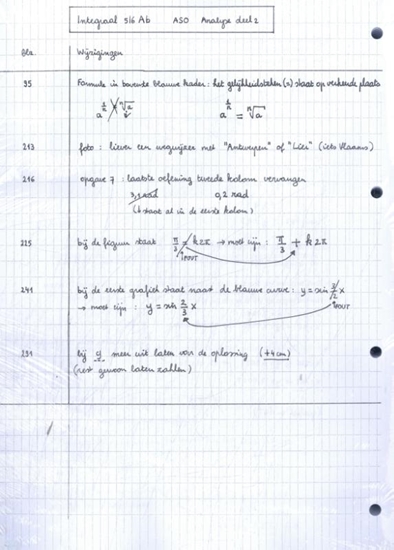 Integraal 5/6 Ab ASO Analyse deel 2
Blz. Wijzigingen
95 Formule in bovenste blauwe kader: het gelijkheidsteken (=) staat op verkeerde plaats
a^(1/n) ⁿ√a a^(1/n) = ⁿ√a
213 foto: liever een wegwijzer met "Antwerpen" of "Lier" (iets Vlaams)
216 opgave 7: laatste oefening tweede kolom vervangen
3,1 rad 0,2 rad
(staat al in de eerste kolom)
225 bij de figuur staat π/3 k2π → moet zijn: π/3 + k2π
FOUT
241 bij de eerste grafiek staat naast de blauwe curve: y = sin 3/2 x
→ moet zijn: y = sin 2/3 x FOUT
bij g meer wit laten van de oplossing (+4cm)
(rest gewoon laten zakken)